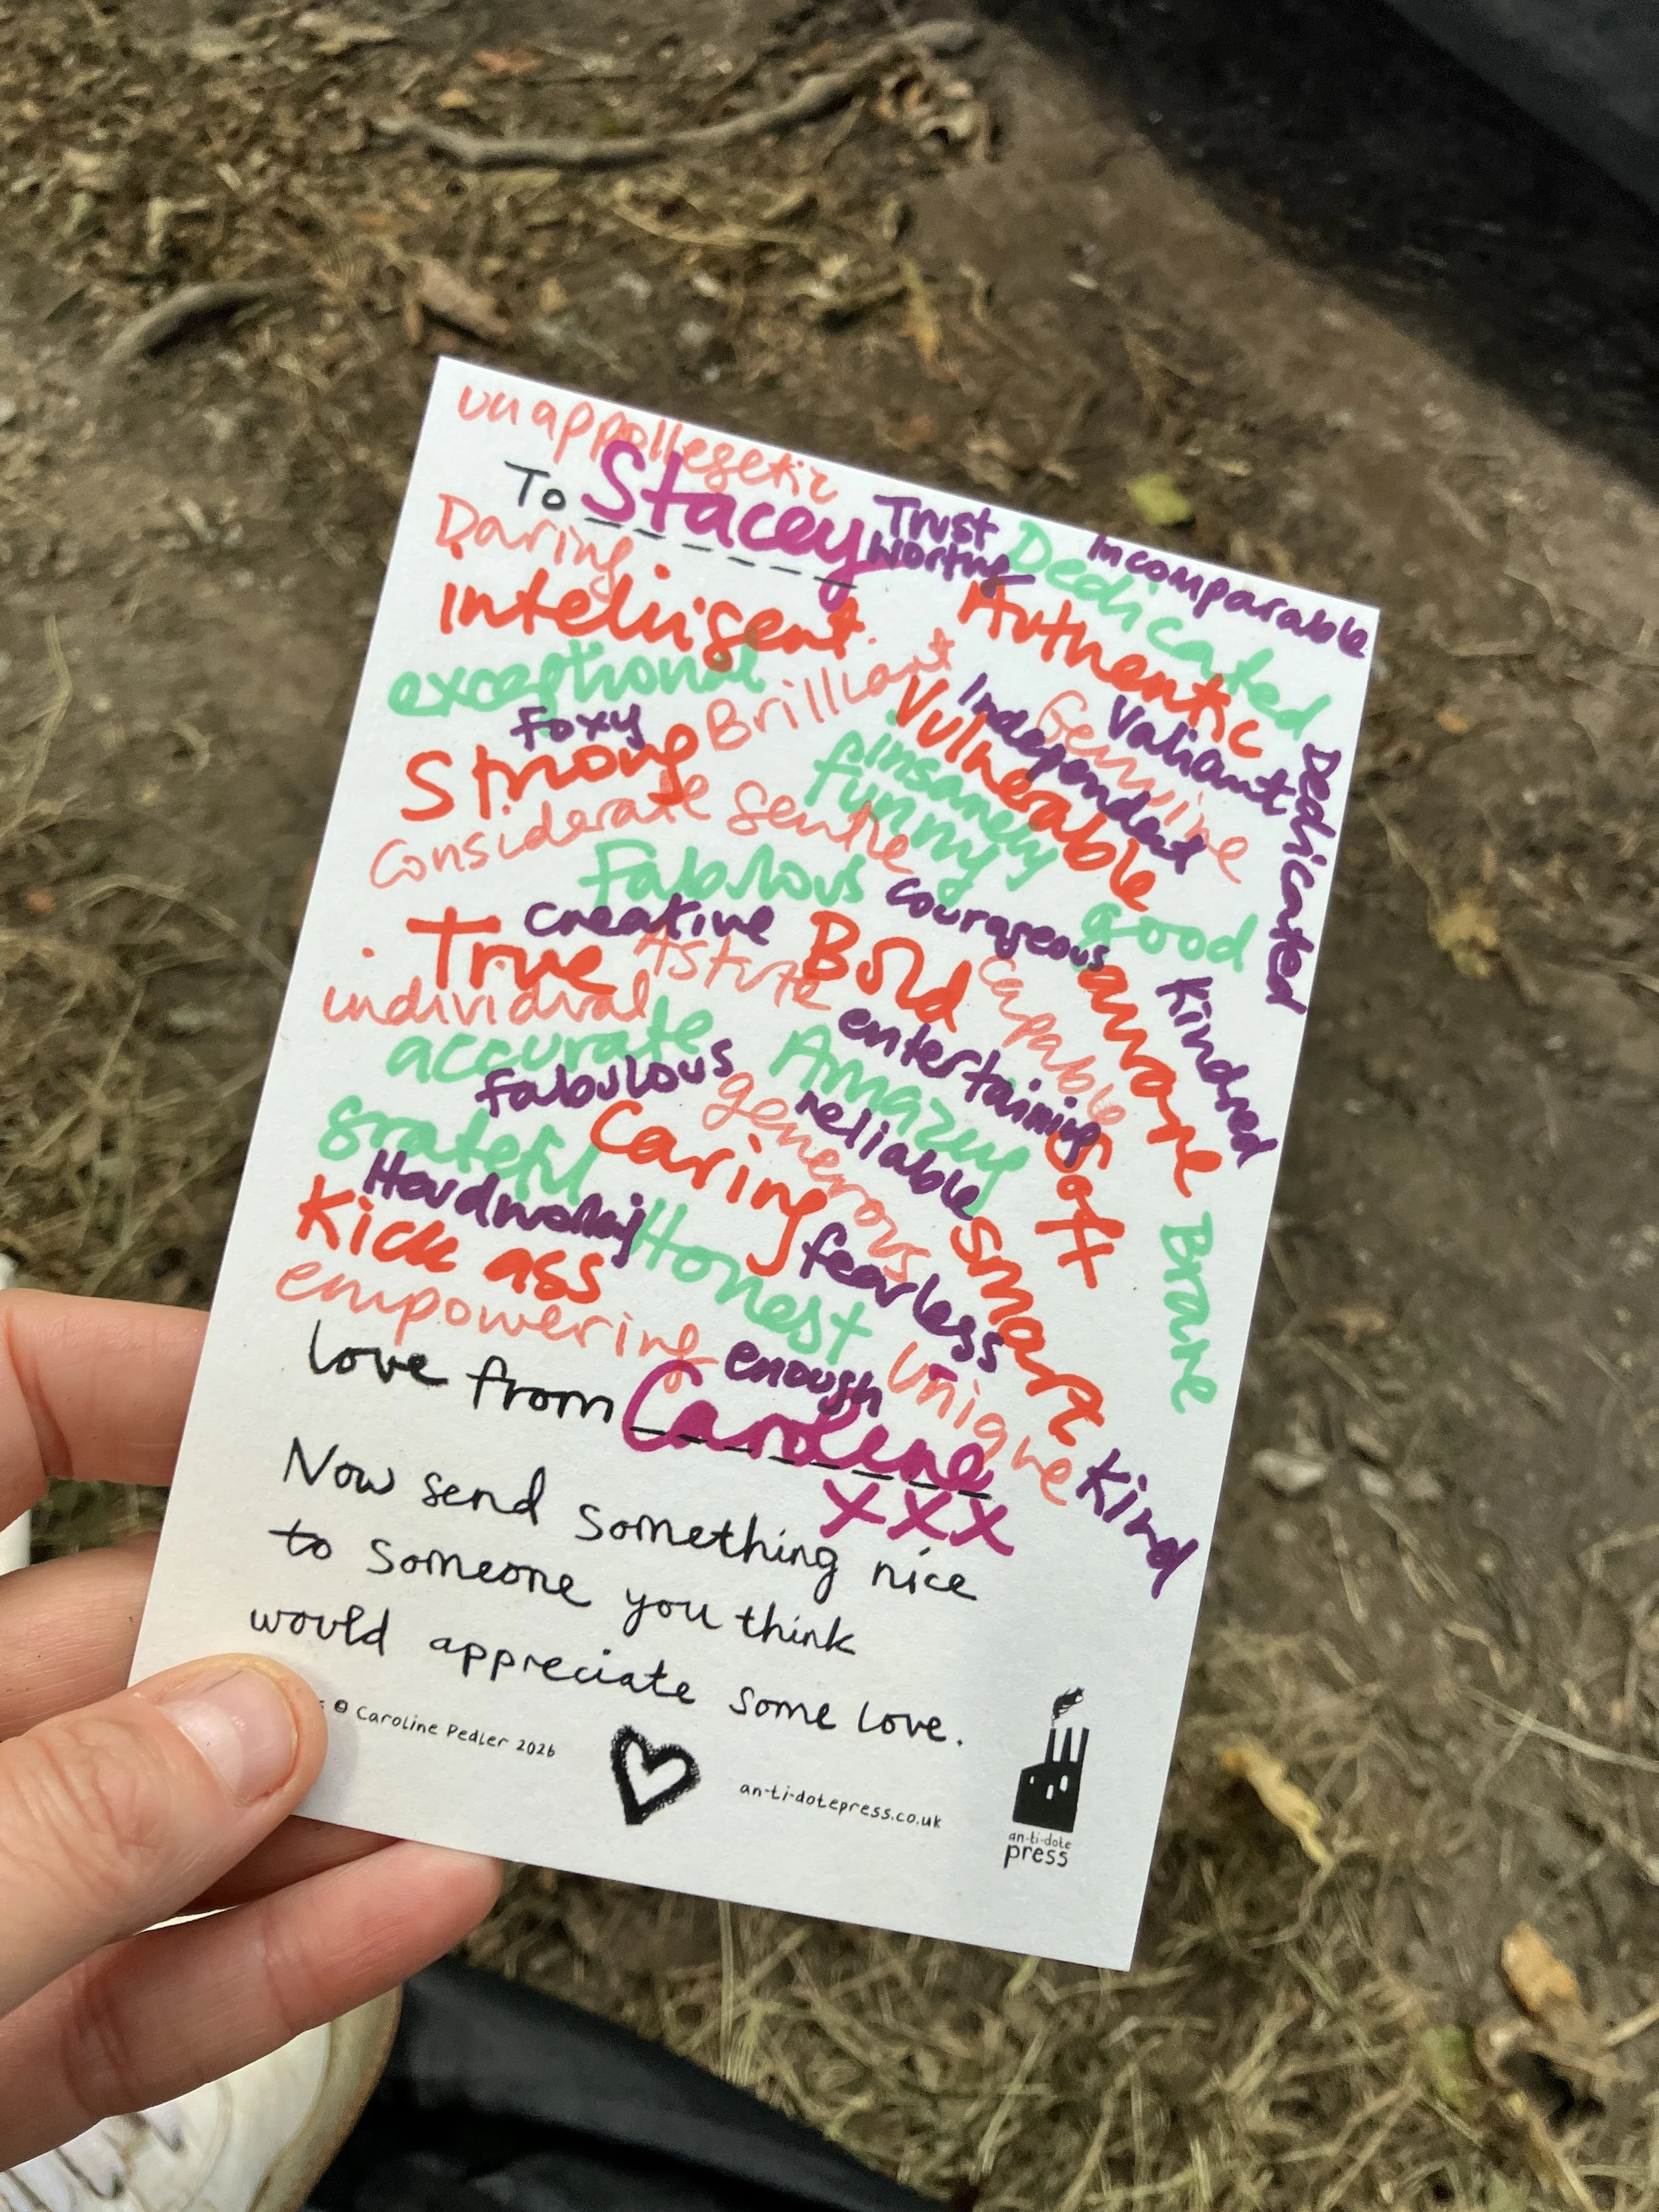 unappollegetic
To Stacey
Trust
worthy
Dedicated
Incomparable
Daring
Intelligent.
Authentic
exceptional
Brilliant
Vulnerable
Independent
Genuine
Valiant
Dedicated
foxy
Strong
insanely
funny
Considerate
Gentle
Fabulous
courageous
Good
creative
True
Astute
Bold
Capable
aware
Kindred
individual
accurate
entertaining
fabulous
Amazing
generous
reliable
grateful
Caring
Soft
Hardworking
Kick ass
Honest
fearless
Smart
Brave
empowering
enough
Unique
Kind
love from Caroline
xxx
Now send something nice
to someone you think
would appreciate some love.
© Caroline Pedler 2026
an-ti-dotepress.co.uk
an-ti-dote
press